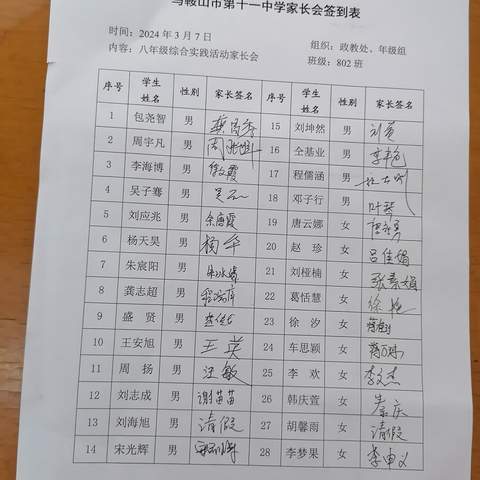 马鞍山市第十一中学家长会签到表
时间：2024年3月7日 组织：政教处、年级组
内容：八年级综合实践活动家长会 班级：802班
序号 学生姓名 性别 家长签名 序号 学生姓名 性别 家长签名
1 包尧智 男 15 刘坤然 男 刘莫
2 周宇凡 男 16 仝基业 男 李艳
3 李海博 男 17 程儒涵 男
4 吴子骞 男 18 邓子行 男 叶琴
5 刘应兆 男 余唐霞 19 唐云娜 女
6 杨天昊 男 杨平 20 赵珍 女 吕佳娟
7 朱宸阳 男 21 刘桠楠 女
8 龚志超 男 22 葛恬慧 女 徐艳
9 盛贤 男 23 徐汐 女
10 王安旭 男 王英 24 车思颖 女
11 周扬 男 汪敏 25 李欢 女 李文杰
12 刘志成 男 谢苗苗 26 韩庆萱 女 秦庆
13 刘海旭 男 请假 27 胡馨雨 女 请假
14 宋光辉 男 28 李梦果 女 李申义